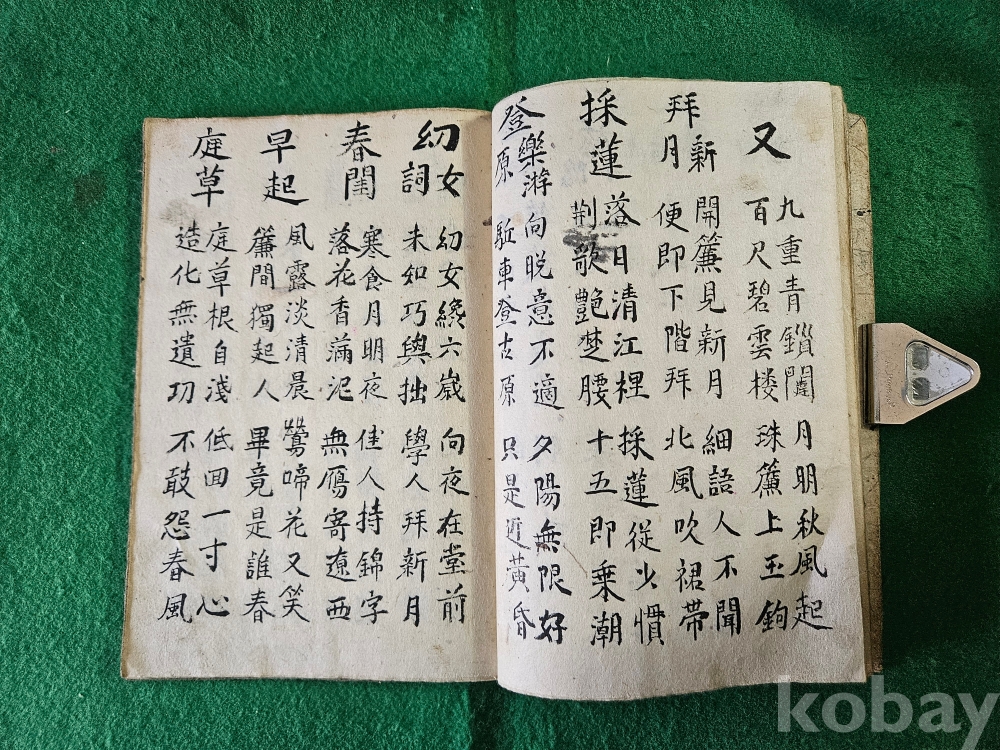 又
九重青鎖闈
百尺碧雲楼
月明秋風起
珠簾上玉鉤
拜新月
開簾見新月
便即下階拜
細語人不聞
北風吹裙帶
採蓮
落日清江裡
荆歌艶楚腰
採蓮從少慣
十五即乗潮
登樂游原
向晩意不適
駈車登古原
夕陽無限好
只是近黃昏
幼女詞
幼女纔六歲
未如巧與拙
向夜在堂前
學人拜新月
春閨
寒食月明夜
落花香滿泥
佳人持錦字
無鴈寄遼西
早起
風露淡清晨
簾間獨起人
鶯啼花又笑
畢竟是誰春
庭草
庭草根自淺
造化無遺功
低回一寸心
不敢怨春風
kobay